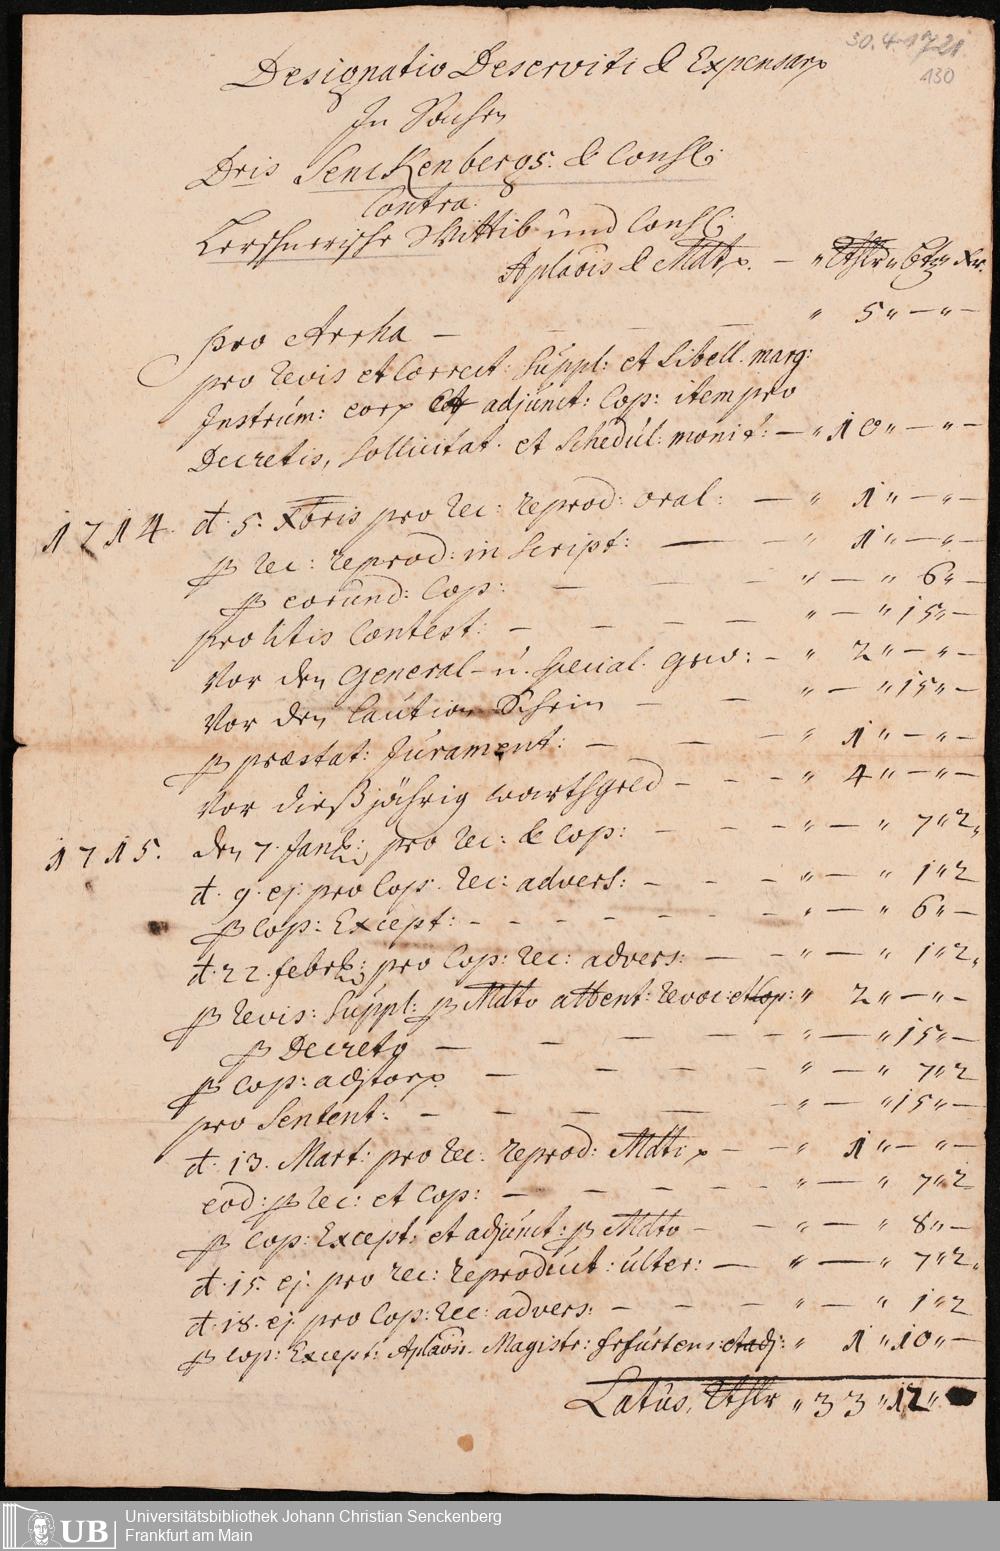 30.4.1721.
130
Designatio Deserviti & Expensarum
In Sachen
Dris Senckenbergs. & Cons:
Contra
Lersnerische Wittib und Cons:
Aplaõis & Mdti p. — " Rthlr " btz " Xr.
pro Arrha — — — — " 5 " — " —
pro revis et Correct: Suppl: et Libell. marg:
Instrum: corp adjunct: Cop: item pro
Decretis, Sollicitat. et Schedul: monit: — " 10 " — " —
1714 d. 5. Xbris pro rec: reprod: oral: — " 1 " — " —
p rec: reprod: in script: — — " 1 " — " —
p eorund: Cop: — — — " — " 6 " —
pro litis Contest: — — — — " — " 15 " —
Vor den General- u. Special. gew: — " 2 " — " —
Vor den Caution Schein — — " — " 15 " —
p præstat: Jurament: — — — " 1 " — " —
Vor dießjährig warthgeld — — — " 4 " — " —
1715. den 7. Jan: pro rec: & Cop: — — — " — " 7 " 2 "
d. 9. ej. pro Cop. rec: advers: — — — " — " 1 " 2
p Cop: Except: — — — — — — " — " 6 " —
d. 22. febr: pro Cop: rec: advers: — — " — " 1 " 2 "
p revis: Suppl: p Mdto attent: revoc: et Cop: " 2 " — " —
p Decreto — — — — — " — " 15 " —
p Cop: adjtorp — — — — " — " 7 " 2
pro Sentent: — — — — — " — " 15 " —
d. 13. Mart: pro rec: reprod: Mdti p — — " 1 " — " —
eod: p rec: et Cop: — — — — — " — " 7 " 2
p Cop: Except: et adjunct: p Mdto — — " — " 8 " —
d. 15. ej. pro rec: reproduct: ulter: — — " — " 7 " 2 "
d. 18. ej. pro Cop: rec: advers: — — — " — " 1 " 2
p Cop: Except: Aplaõis Magistr: Erfurtens: et adj: " 1 " 10 " —
Latus, Rthlr " 33 " 12 "
UB
Universitätsbibliothek Johann Christian Senckenberg
Frankfurt am Main